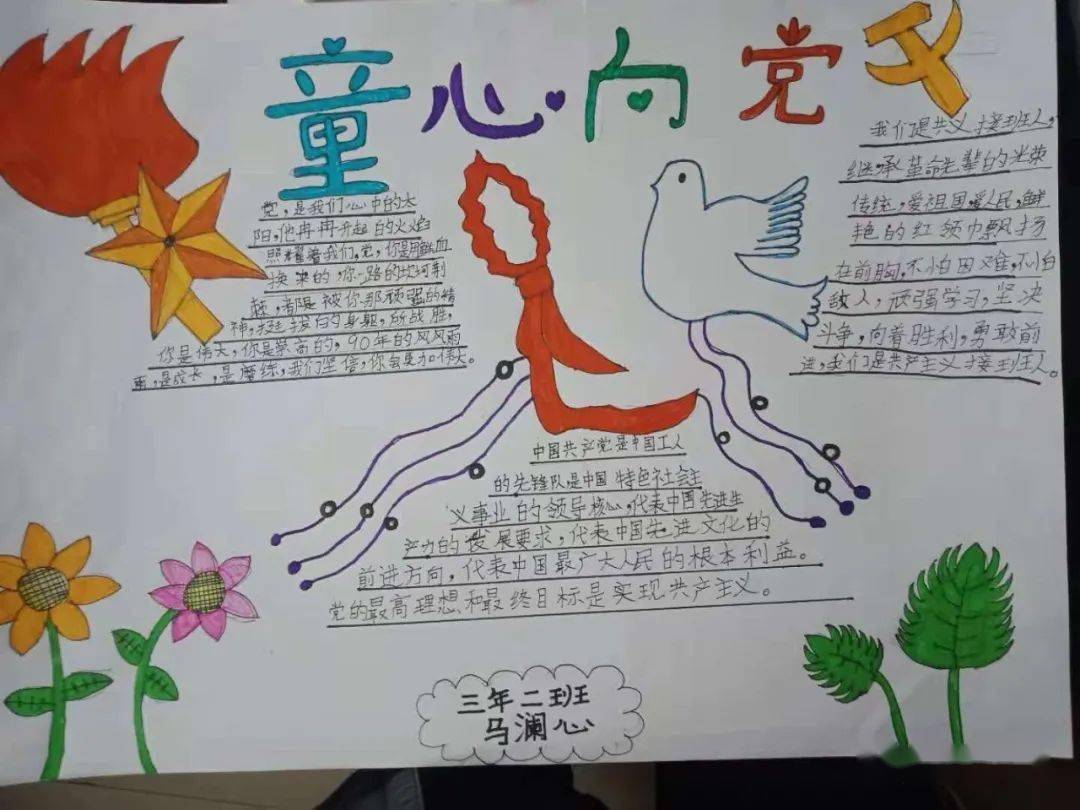 童心向党
党，是我们心中的太
阳，他冉冉升起的火焰
照耀着我们。党，你是用鲜血
换来的，你一路的坎坷荆
棘，都是被你那顽强的精
神，挺拔的身躯，所战胜，
你是伟大，你是崇高的，90年的风风雨
雨，是成长，是磨练，我们坚信，你会更加伟大。
我们是共义接班人，
继承革命先辈的光荣
传统，爱祖国爱人民，鲜
艳的红领巾飘扬
在前胸，不怕困难，不怕
敌人，顽强学习，坚决
斗争，向着胜利，勇敢前
进，我们是共产主义接班人。
中国共产党是中国工人
的先锋队是中国特色社会主
义事业的领导核心，代表中国先进生
产力的发展要求，代表中国先进文化的
前进方向，代表中国最广大人民的根本利益。
党的最高理想和最终目标是实现共产主义。
三年二班
马澜心